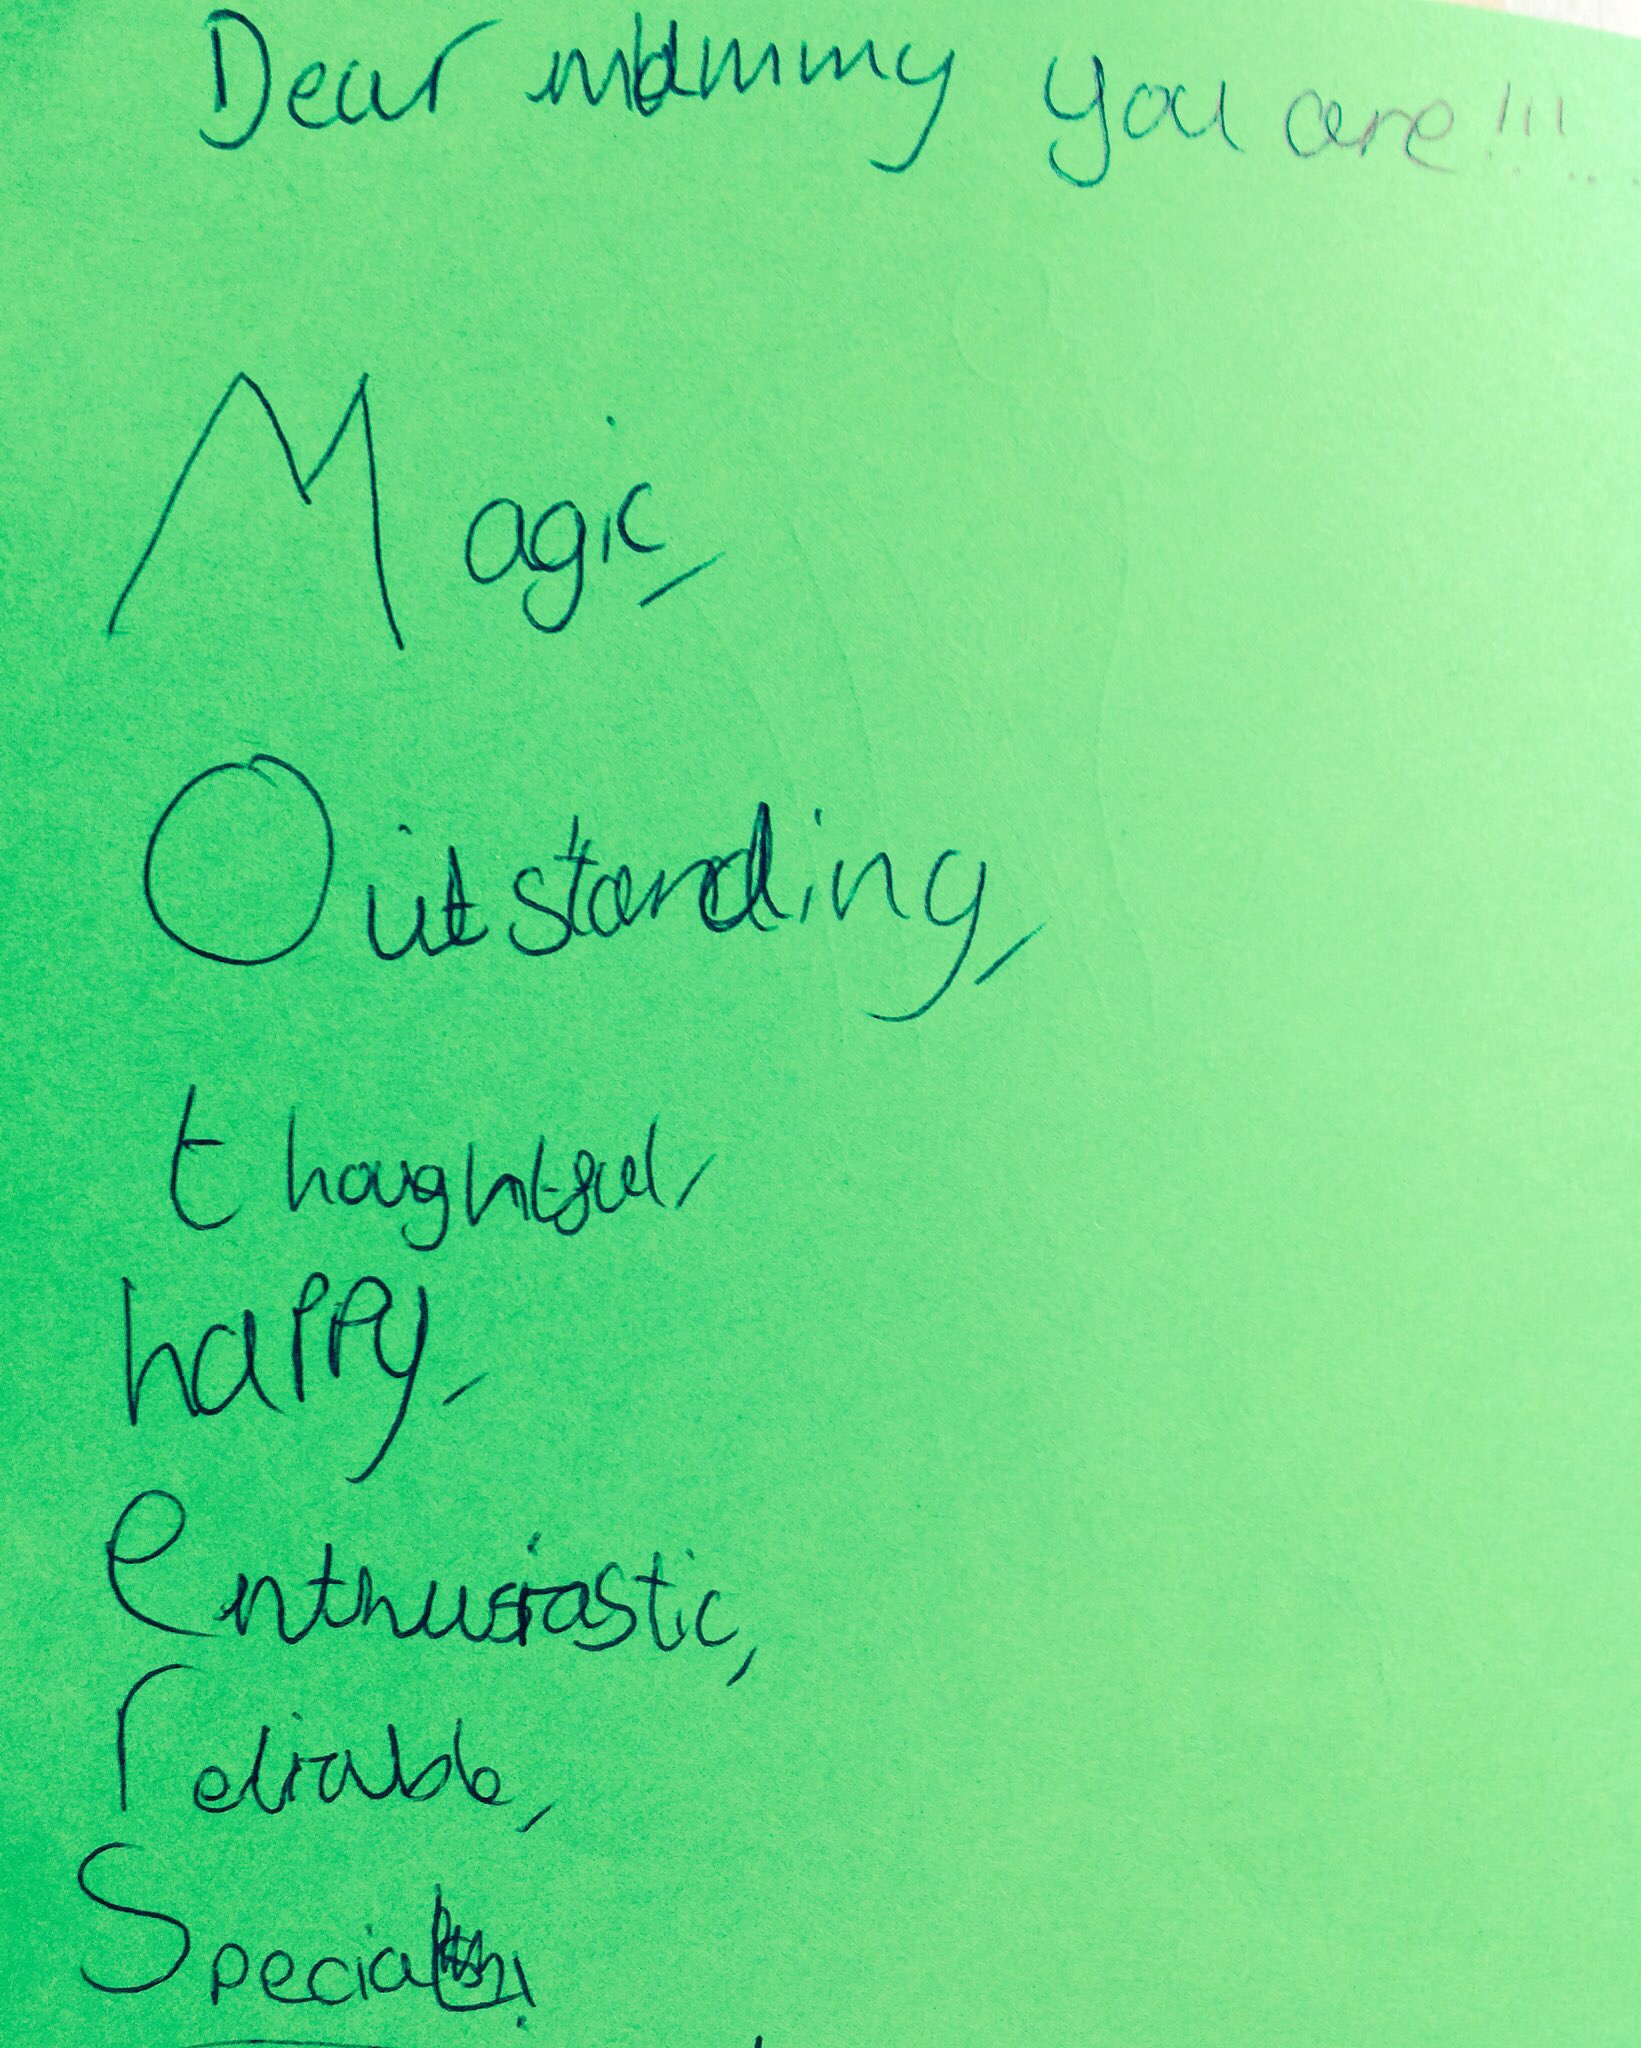 Dear mammy you are!!!...
Magic,
Outstanding,
thoughtful,
happy,
enthusiastic,
reliable,
Special!